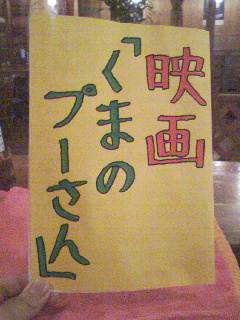 映画
「くまの
プーさん」